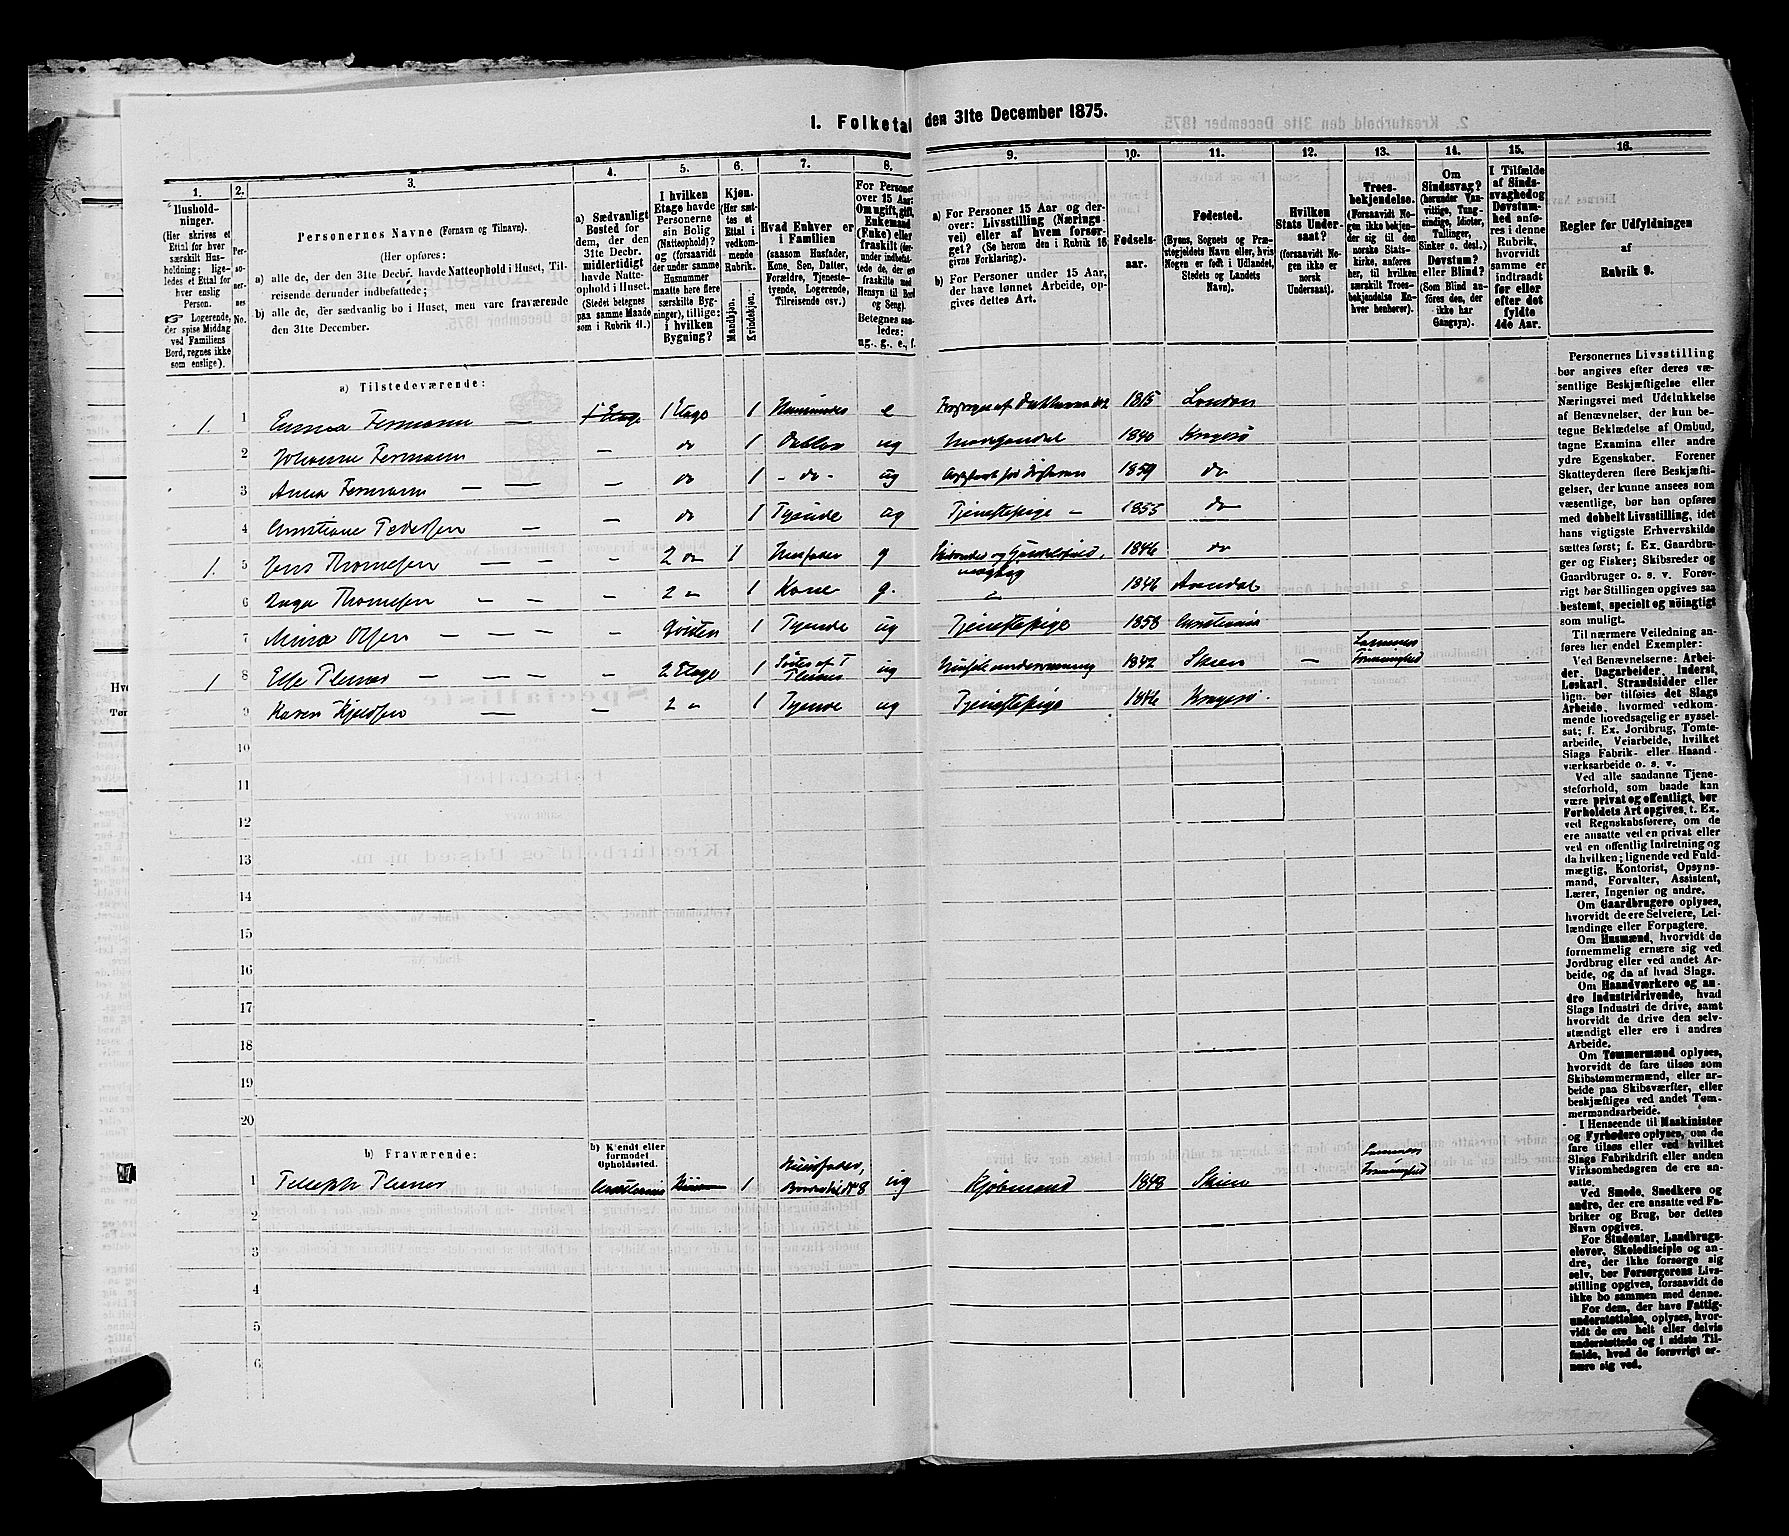 1. Folketal den 31te December 1875.
1. 2. 3. 4. 5. 6. 7. 8. 9. 10. 11. 12. 13. 14. 15. 16.
Husholdninger.
(Her skrives et
Ettal for hver
særskilt Husholdning; ligeledes
et Ettal for
hver enslig
Person.
☞ Logerende,
der spise Middag
ved Familiens
Bord, regnes ikke
som enslige).
Personernes No.
Personernes Navne (Fornavn og Tilnavn).
(Her opføres:
a) alle de, der den 31te Decbr. havde Natteophold i Huset, Tilreisende
derunder indbefattede;
b) alle de, der sædvanlig bo i Huset, men vare fraværende
den 31te December.
a) Sædvanligt
Bosted for
dem, der den
31te Decbr.
midlertidigt
havde Natteophold
i Huset.
(Stedet betegnes
paa samme Maade
som i Rubrik 11.)
I hvilken
Etage havde
Personerne
sin Bolig
(Natteophold)?
og (forsaavidt
der under samme
Husnummer
maatte høre flere
særskilte Bygninger),
tillige:
i hvilken
Bygning?
Kjøn.
(Her sættes
et
Ettal i
vedkommende
Rubrik.
Mandkjøn.
Kvindekjøn.
Hvad Enhver er
i Familien
(saasom Husfader,
Kone, Søn, Datter,
Forældre, Tjenestetyende,
Logerende,
Tilreisende osv.)
For Personer
over 15 Aar:
Om ugift, gift,
Enkemand
(Enke) eller
fraskilt
Betegnes saaledes:
ug., g., e., f.
a) For Personer 15 Aar og derover:
Livsstilling (Næringsvei)
eller af hvem forsørget?
(Se herom den i Rubrik 16
givne Forklaring).
b) For Personer under 15 Aar,
der have lønnet Arbeide, opgives
dettes Art.
Fødselsaar.
Fødested.
(Byens, Sognets og Præstegjeldets
Navn eller, hvis
Nogen er født i Udlandet,
Stedets og Landets
Navn).
Hvilken
Stats Undersaat?
(forsaavidt Nogen
ikke er
norsk
Undersaat).
Troesbekjendelse.
(Forsaavidt Nogen
ikke bekjender
sig til den
norske Statskirke,
anføres
her, til hvilken
særskilt Troesbekjendelse
Enhver
henhører).
Om
Sindssvag?
(herunder Vanvittige,
Tungsindige,
Idioter,
Tullinger,
Sinker o. desl.)
Døvstum?
eller Blind?
(Som Blind anføres
den, der
ikke har
Gangsyn).
I Tilfælde
af Sindssvaghed
og
Døvstumhed
anføres
i denne
Rubrik,
hvorvidt
samme er
indtraadt
før eller
efter det
fyldte
4de Aar.
Regler for Udfyldningen
af
Rubrik 9.
a) Tilstedeværende:
1. 1 Emma Fermann — 1 Etage 1 Etage 1 e 1815 London
2 Johanne Fermann — do 1 Datter ug 1840 Kragerø
3 Anna Fermann — — do 1 - do - ug 1859 do
4 Christiane Pedersen — — do 1 Tyende ug Tjenestepige - 1855 do
1. 5 Jens Thomesen — — 2 do 1 Husfader g 1846 do
6 Inga Thomesen — — 2 " 1 Kone g. " 1846 Arendal
7 Mina Olsen — — — Qvisten 1 Tyende ug Tjenestepige 1858 Christiania
1 8 Else Plesner — — 2 Etage 1 Søster af T Plesner ug 1842 Skien —
9 Karen Kjeldsen — — 2 " 1 Tyende ug Tjenestepige 1846 Kragerø
10
11
12
13
14
15
16
17
18
19
20
b) Fraværende:
b) Kjendt eller
formodet
Opholdssted.
1 Plesner Christiania 1 Husfader, ug Kjøbmand 1848 Skien
2
3
4
5
6
Personernes Livsstilling
bør angives efter deres væsentlige
Beskjæftigelse eller
Næringsvei med Udelukkelse
af Benævnelser, der kun betegne
Beklædelse af Ombud,
tagne Examina eller andre
ydre Egenskaber. Forener
Skatteyderen flere Beskjæftigelser,
der kunne ansees som
væsentlige, bør han opføres
med dobbelt Livsstilling, idet
hans vigtigste Erhvervskilde
sættes først; f. Ex. Gaardbruger
og Fisker; Skibsreder og
Gaardbruger o. s. v. Forøvrigt
bør Stillingen opgives saa
bestemt, specielt og nöiagtigt
som muligt.
Til nærmere Veiledning anføres
her endel Exempler:
Ved Benævnelserne: Arbeider,
Dagarbeider, Inderst,
Løskarl, Strandsidder eller
lign. bør tilføies det Slags
Arbeide, hvormed vedkommende
hovedsagelig er sysselsat;
f. Ex. Jordbrug, Tomtearbeide,
Veiarbeide, hvilket
Slags Fabrik- eller Haandværksarbeide
o. s. v.
Ved alle saadanne Tjenesteforhold,
som baade kan
være privat og offentligt, bør
Forholdets Art opgives, t. Ex.
ved Regnskabsførere, om de
ere ansatte ved en privat eller
ved en offentlig Indretning og
da hvilken; lignende ved Fuldmægtig,
Kontorist, Opsynsmand,
Forvalter, Assistent,
Lærer, Ingeniør og andre.
Om Gaardbrugere oplyses,
hvorvidt de ere Selveiere, Leilændinge
eller Forpagtere.
Om Husmænd, hvorvidt de
fornemmelig ernære sig ved
Jordbrug eller ved andet Arbeide,
og da af hvad Slags.
Om Haandværkere og andre
Industridrivende, hvad
Slags Industri de drive, samt
hvorvidt de drive den selvstændigt
eller ere i andres
Arbeide.
Om Tømmermænd oplyses,
hvorvidt de fare tilsøs som
Skibstømmermænd, eller arbeide
paa Skibsværfter, eller
beskjæftiges ved andet Tømmermandsarbeide.
I Henseende til Maskinister
og Fyrbødere oplyses, om de
fare tilsøs eller ved hvilket
Slags Fabrikdrift eller anden
Virksomhedsgren de ere ansatte.
Ved Smede, Snedkere og
andre, der ere ansatte ved Fabriker
og Brug, bør dettes
Navn opgives.
For Studenter, Landbrugselever,
Skoledisciple og andre,
der ikke forsørge sig
selv, bør Forsørgerens Livsstilling
opgives, forsaavidt de
ikke bo sammen med denne.
For dem, der have Fattigunderstøttelse,
oplyses, hvorvidt
de ere helt eller delvis
understøttede og i sidste Tilfælde,
hvad de forøvrigt ernære
sig ved.